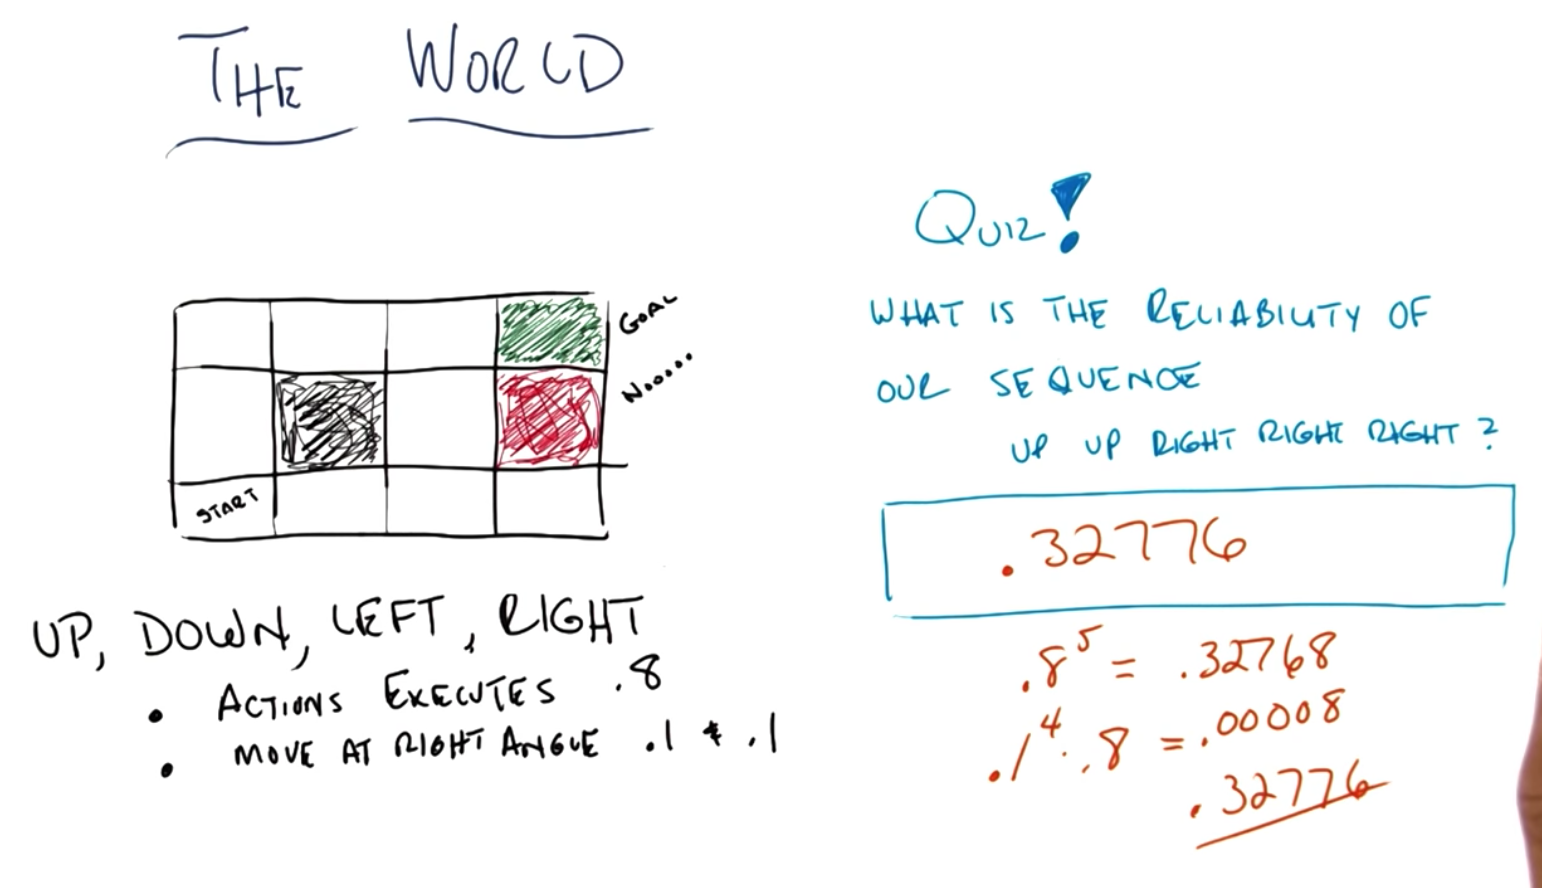 THE WORLD
GOAL
Noooo..
START
UP, DOWN, LEFT, RIGHT
• ACTIONS EXECUTES .8
• MOVE AT RIGHT ANGLE .1 & .1
QUIZ!
WHAT IS THE RELIABILITY OF
OUR SEQUENCE
UP UP RIGHT RIGHT RIGHT ?
.32776
.8⁵ = .32768
.1⁴ · .8 = .00008
.32776